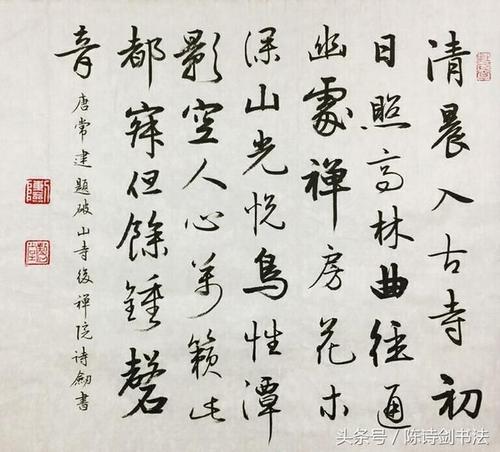 清晨入古寺初
日照高林曲径通
幽處禅房花木
深山光悦鳥性潭
影空人心萬籁此
都寂但餘鍾磬
音
唐常建題破山寺後禅院诗劍書
头条号／陈诗剑书法